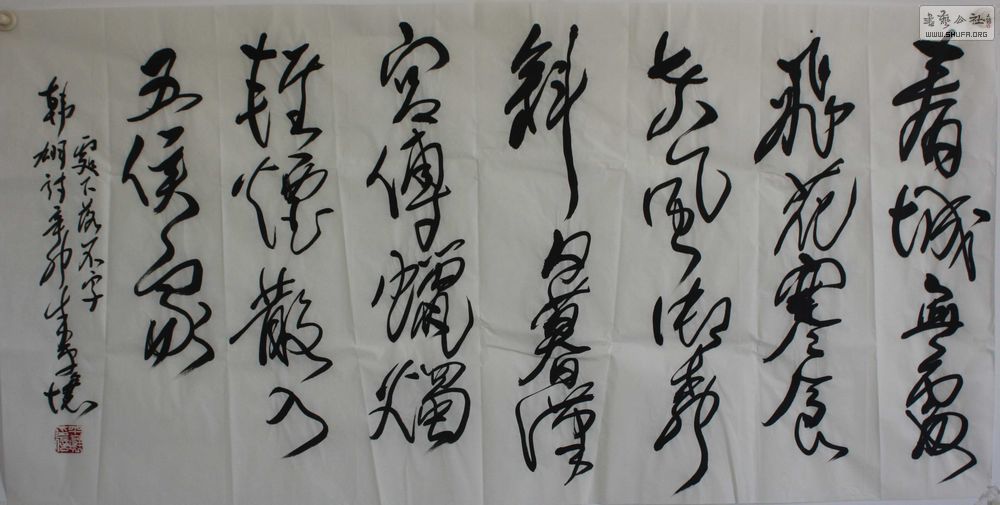 春城無處
飛花寒食
東風御柳
斜日暮漢
宮傳蠟燭
輕煙散入
五侯家
處下落不字
韓翃詩辛卯
書藝公社
WWW.SHUFA.ORG